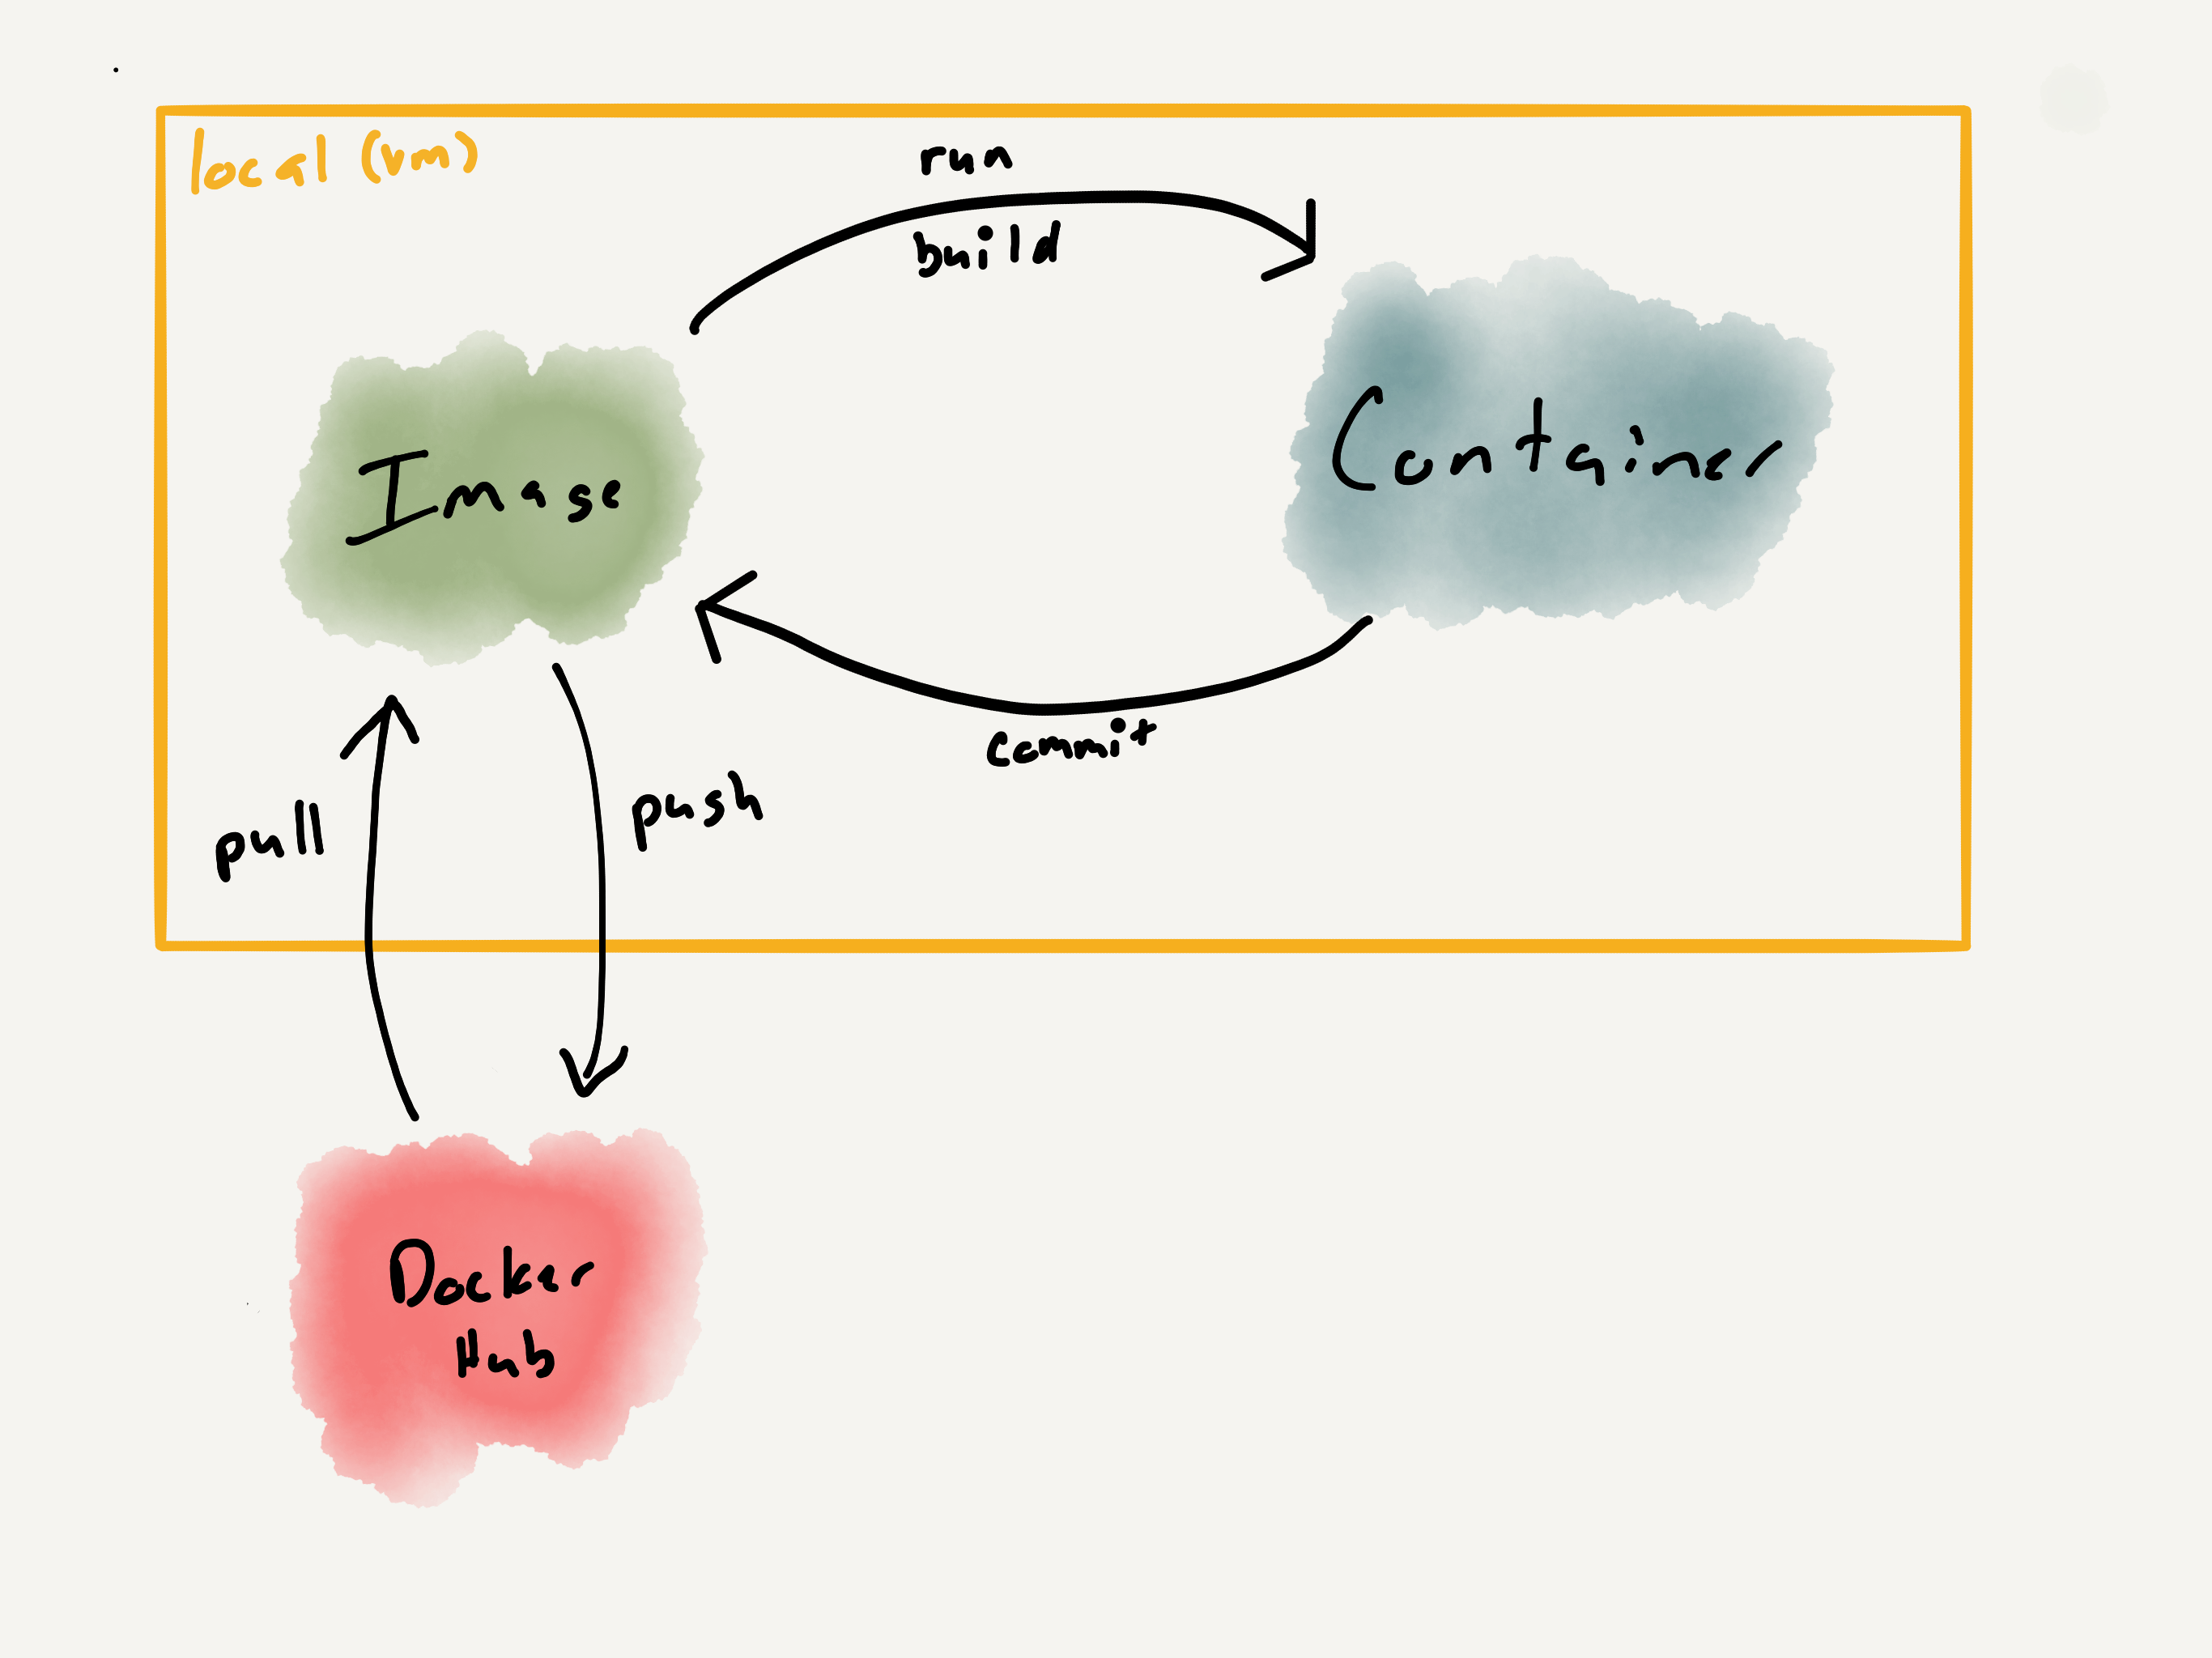 local (vm)
run
build
Image
Container
commit
pull
push
Docker
Hub